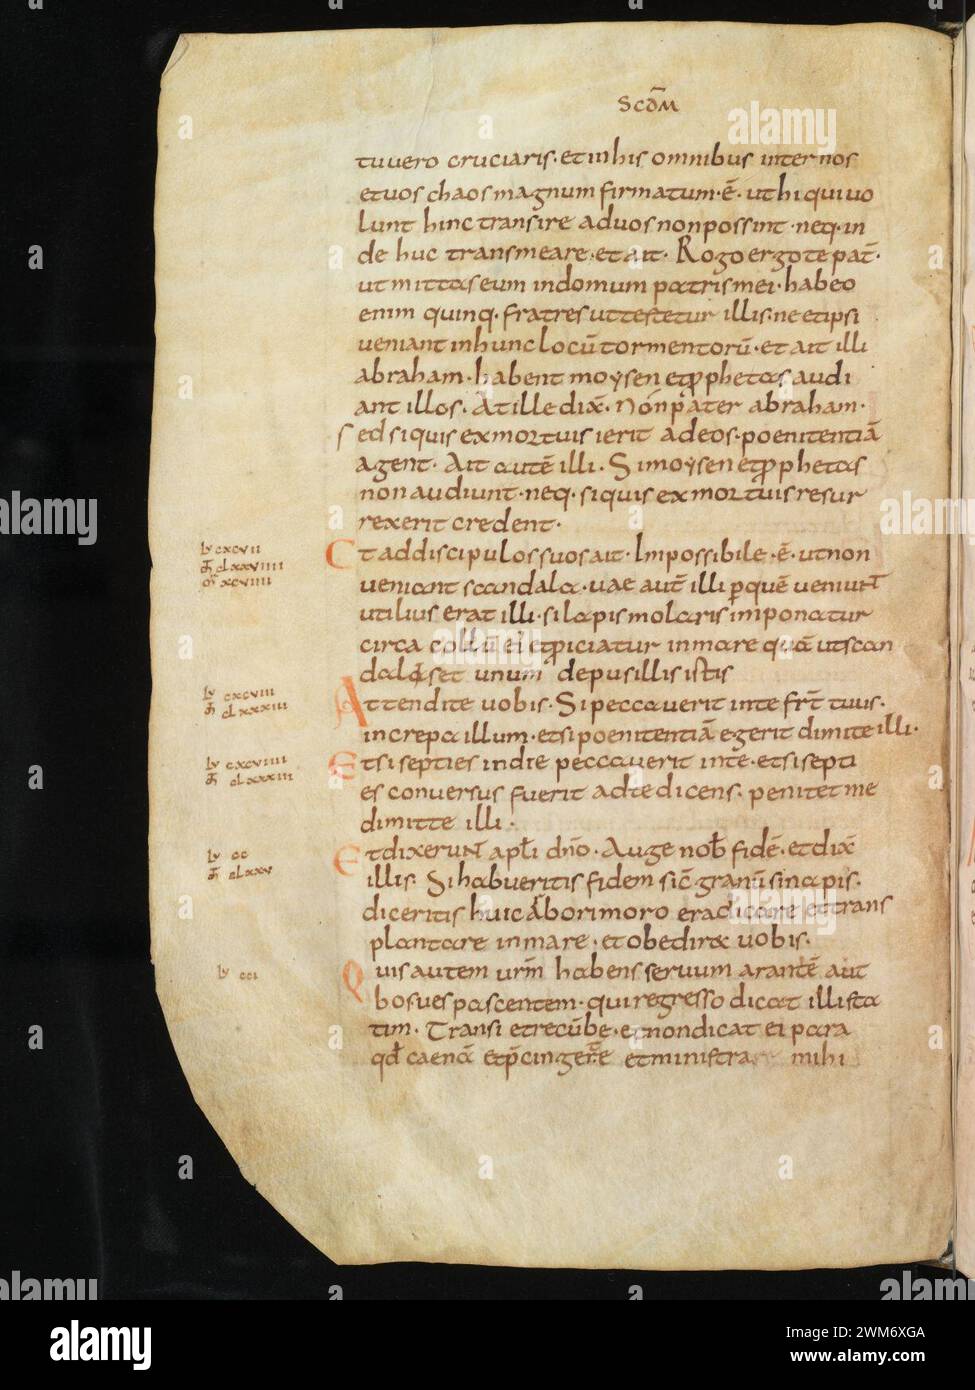 Scd̄m
tu vero cruciaris· et in his omnibus inter nos
et vos chaos magnum firmatum·ē· ut hi qui vo
lunt hinc transire ad vos non possint· neq· in
de huc transmeare· et ait· Rogo ergo te pat̄·
ut mittas eum in domum patris mei· habeo
enim quinq· fratres ut testetur illis· ne et ipsi
veniant in hunc locū tormentorū· et ait illi
abraham· habent moysen et prophetas audi
ant illos· At ille dix̄· Non pater abraham·
sed si quis ex mortuis ierit ad eos· poenitentiā
agent· Ait autē illi· Si moysen et prophetas
non audiunt· neq· si quis ex mortuis resur
rexerit credent·
lv cxcvii
m̄ clxxviiii
m̄ xcviiii
Et ad discipulos suos ait· Impossibile·ē· ut non
veniant scandala· vae aut̄ illi p quē veniunt
utilius erat illi· si lapis molaris imponatur
circa collū ei et proiciatur in mare quā ut scan
dalizet unum de pusillis istis
lv cxcviii
m̄ clxxxiii
Attendite vobis· Si peccaverit in te frat̄ tuus·
increpa illum· et si poenitentiā egerit dimitte illi·
lv cxcviiii
m̄ clxxxiii
Et si septies in die peccaverit in te· et si septi
es conversus fuerit ad te dicens· penitet me
dimitte illi·
lv cc
m̄ clxxv
Et dixerunt apl̄i dn̄o· Auge nob̄ fidē· et dix̄
illis· Si habueritis fidem sic̄ granū sinapis·
diceritis huic arbori moro eradicare et trans
plantare in mare· et obediret vobis·
lv cci
Quis autem vrm̄ habens servum arantē aut
boves pascentem· qui regresso dicat illi sta
tim· Transi et recūbe· et non dicat ei para
qd̄ caenē et p̄cingere et ministra mihi
alamy
Image ID: 2WM6XGA
www.alamy.com